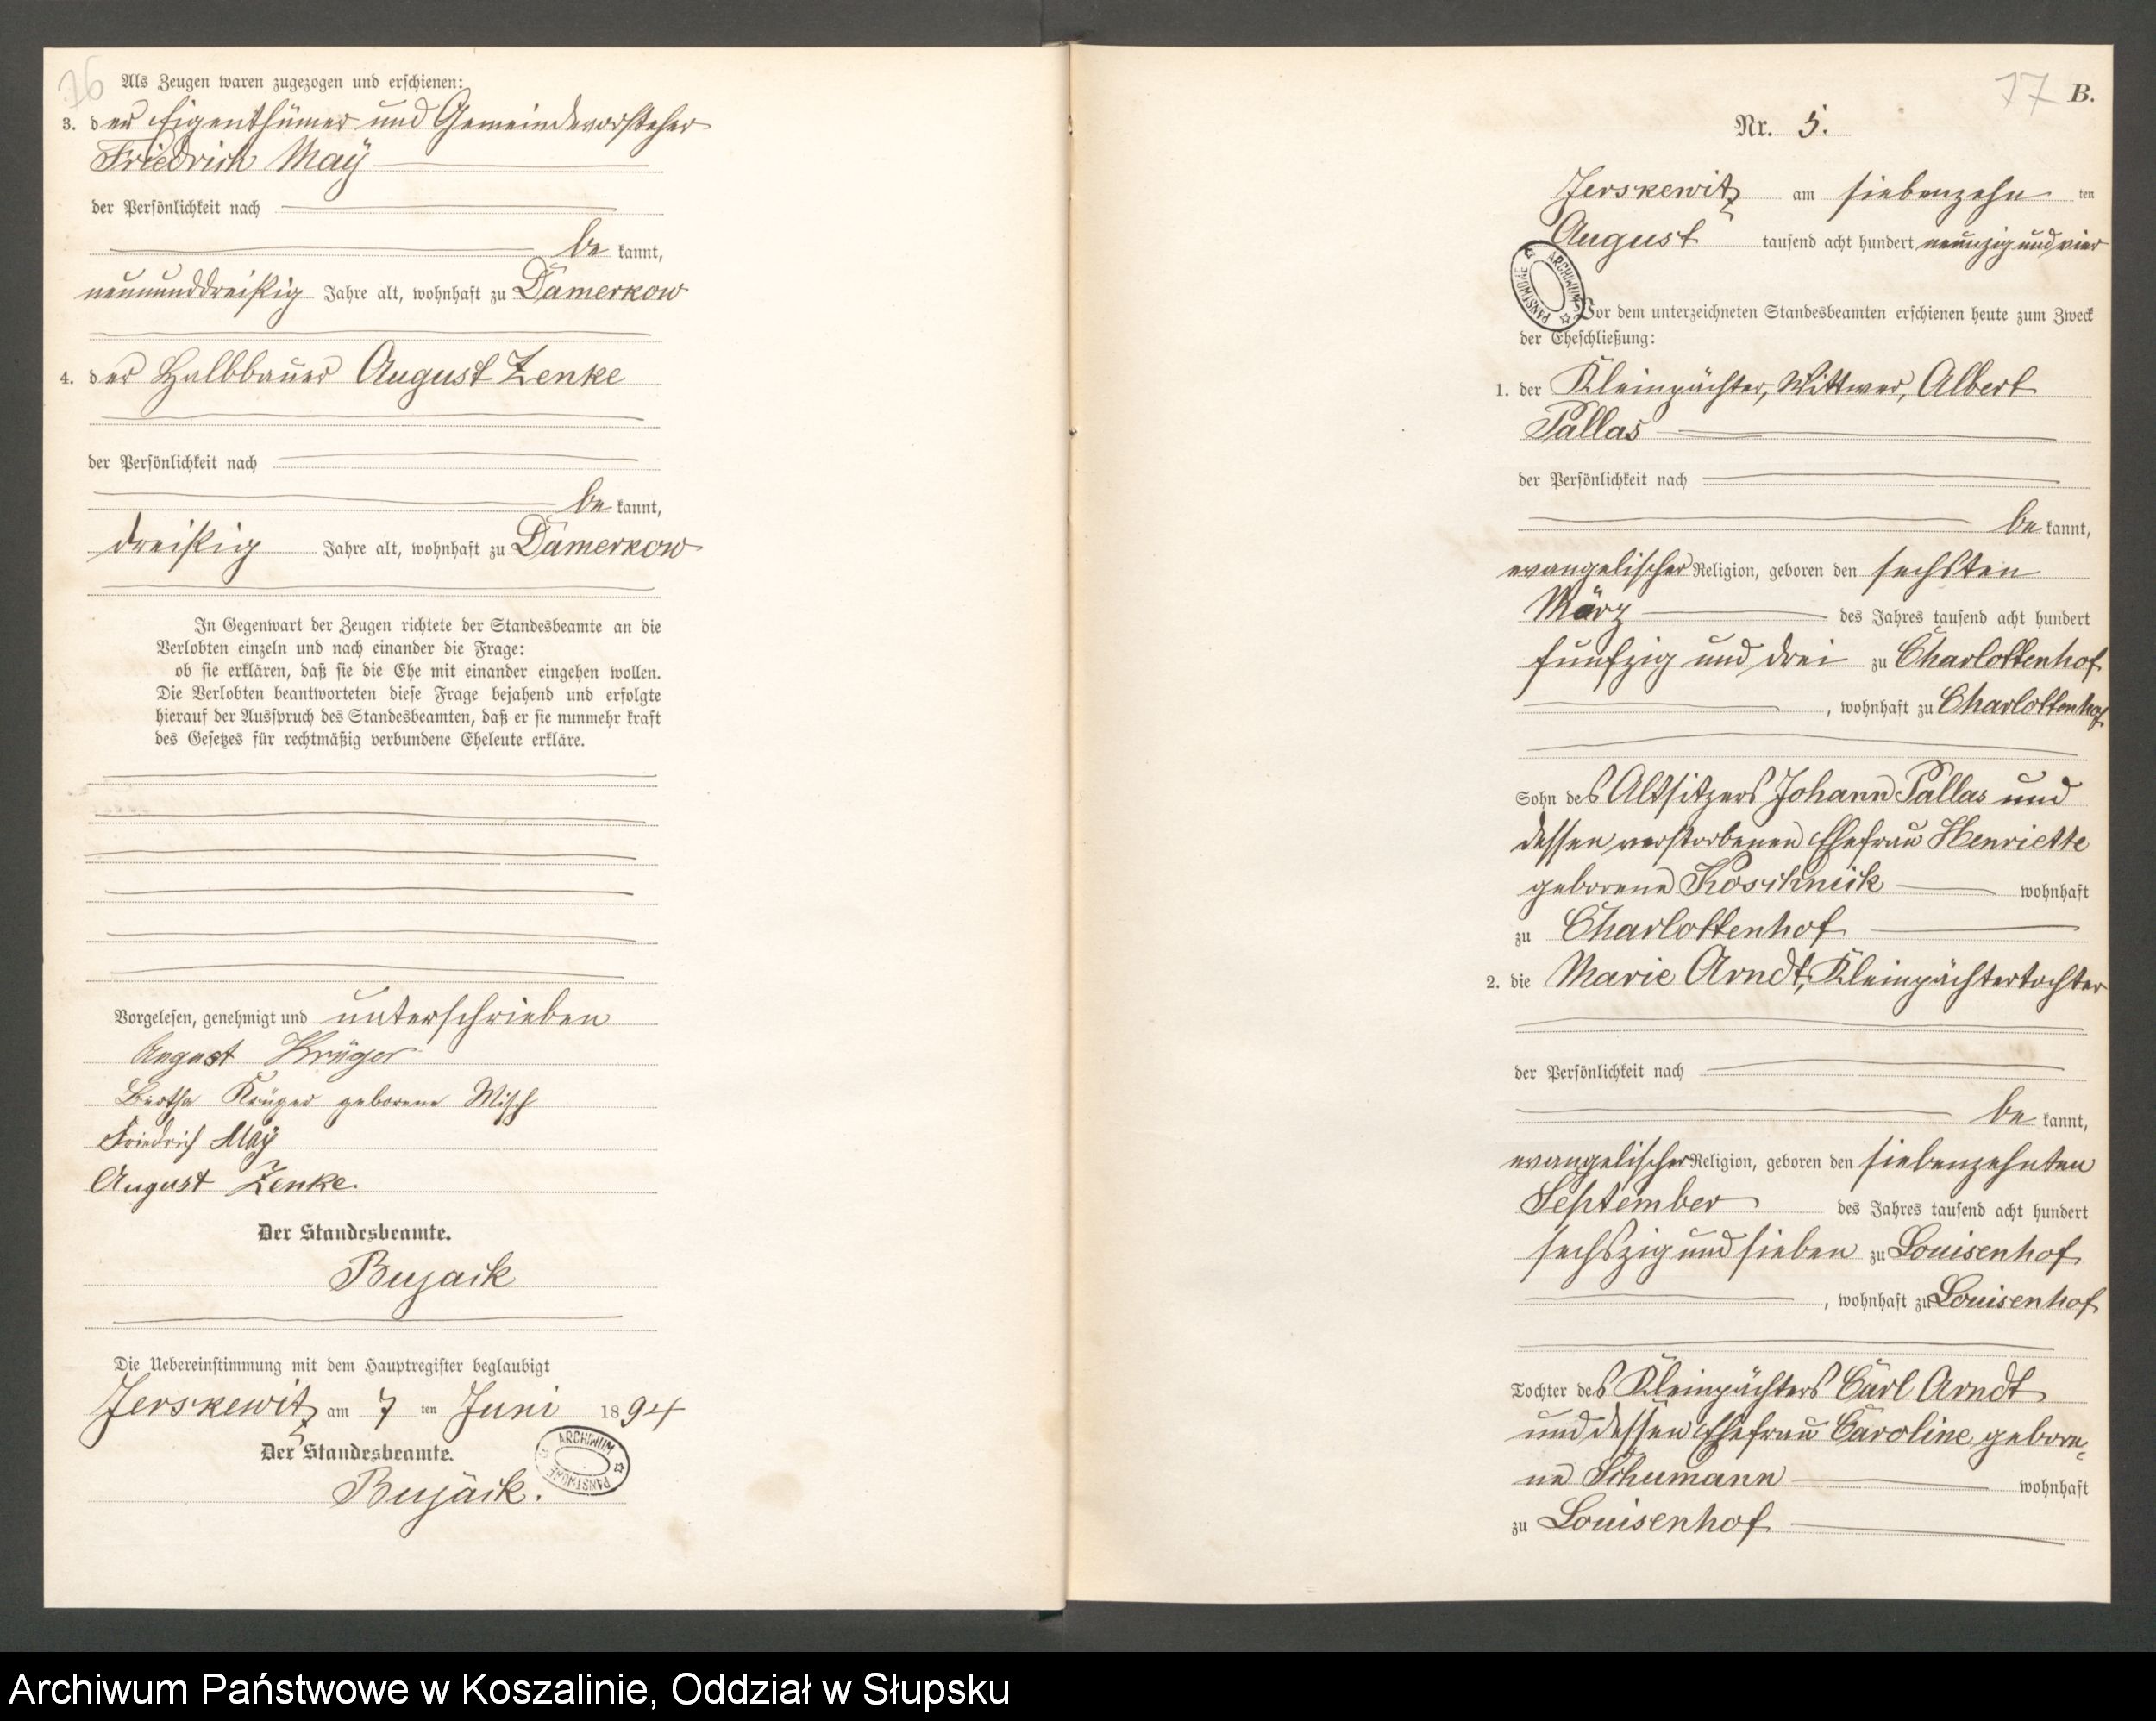 76
Als Zeugen waren zugezogen und erschienen:
3. der Eigenthümer und Gemeindevorsteher
Friedrich Maÿ
der Persönlichkeit nach
be kannt,
neununddreißig Jahre alt, wohnhaft zu Damerkow
4. der Halbbauer August Zenke
der Persönlichkeit nach
be kannt,
dreißig Jahre alt, wohnhaft zu Damerkow
In Gegenwart der Zeugen richtete der Standesbeamte an die
Verlobten einzeln und nach einander die Frage:
ob sie erklären, daß sie die Ehe mit einander eingehen wollen.
Die Verlobten beantworteten diese Frage bejahend und erfolgte
hierauf der Ausspruch des Standesbeamten, daß er sie nunmehr kraft
des Gesetzes für rechtmäßig verbundene Eheleute erkläre.
Vorgelesen, genehmigt und unterschrieben
August Krüger
Bertha Krüger geborene Misch
Friedrich Maÿ
August Zenke
Der Standesbeamte.
Bujack
Die Uebereinstimmung mit dem Hauptregister beglaubigt
Jerskewitz am 7 ten Juni 1894
Der Standesbeamte.
Bujack.
ARCHIWUM PAŃSTWOWE
77 B.
Nr. 5.
Jerskewitz am siebenzehn ten
August tausend acht hundert neunzig und vier
ARCHIWUM PAŃSTWOWE
Vor dem unterzeichneten Standesbeamten erschienen heute zum Zweck
der Eheschließung:
1. der Kleinpächter, Wittwer, Albert
Pallas
der Persönlichkeit nach
be kannt,
evangelischer Religion, geboren den sechsten
März des Jahres tausend acht hundert
funfzig und drei zu Charlottenhof
, wohnhaft zu Charlottenhof
Sohn des Altsitzers Johann Pallas und
dessen verstorbenen Ehefrau Henriette
geborene Koschnick wohnhaft
zu Charlottenhof
2. die Marie Arndt, Kleinpächtertochter
der Persönlichkeit nach
be kannt,
evangelischer Religion, geboren den siebenzehnten
September des Jahres tausend acht hundert
sechszig und sieben zu Louisenhof
, wohnhaft zu Louisenhof
Tochter des Kleinpächters Carl Arndt
und dessen Ehefrau Caroline gebore-
ne Schumann wohnhaft
zu Louisenhof
Archiwum Państwowe w Koszalinie, Oddział w Słupsku